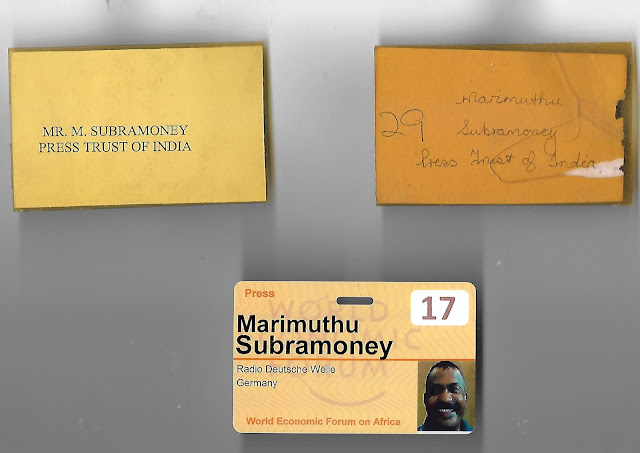 MR. M. SUBRAMONEY
PRESS TRUST OF INDIA
29
Marimuthu
Subramoney
Press Trust of India
Press
17
WORLD
ECONOMIC
FORUM
Marimuthu
Subramoney
Radio Deutsche Welle
Germany
World Economic Forum on Africa